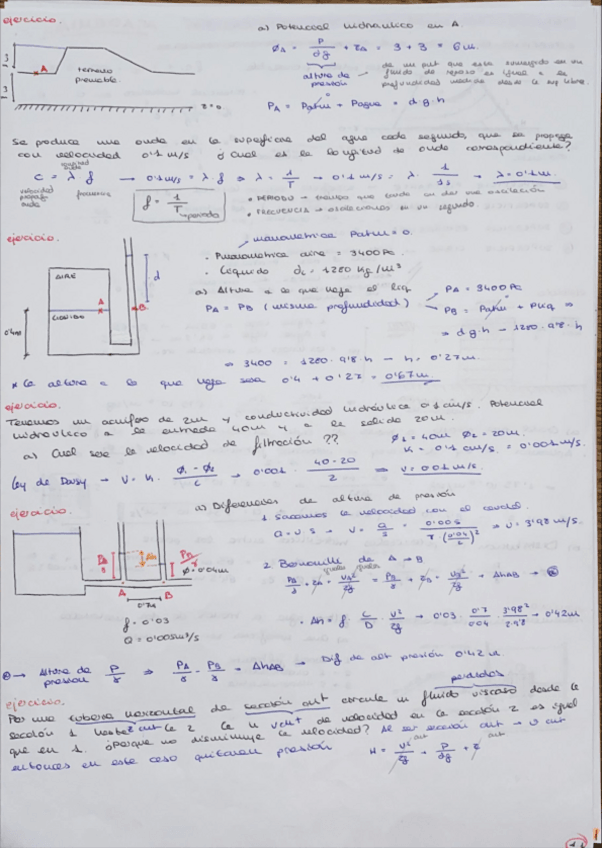 ejercicio.
a) Potencial hidráulico en A
ΦA = P/dg + zA = 3 + 3 = 6m.
altura de presión
de un put que esta sumergido en un
fluido de reposo es igual a la
profundidad medida desde la sup libre.
A
terreno
permeable.
z=0
PA = Patm + Pagua = d·g·h
Se produce una onda en la superficie del agua cada segundo, que se propaga
con velocidad 0'1 m/s ¿Cual es la longitud de onda correspondiente?
C = λ f → 0'1 m/s = λ · f ⇒ λ = 1/T → 0'1 m/s = λ · 1/1s → λ = 0'1m.
longitud onda
velocidad
frecuencia
f = 1/T periodo
• PERIODO → tiempo que tarda en dar una oscilación
• FRECUENCIA → oscilaciones en un segundo.
ejercicio.
manometrica Patm = 0.
• Pmanometrica aire = 3400 Pa.
• Líquido dL = 1280 Kg/m³
AIRE
LIQUIDO
A
B
d
0'4m
a) Altura a la que llega el liq.
PA = PB (misma profundidad)
PA = 3400Pa
PB = Patm + Pliq ⇒
⇒ d·g·h → 1280 · 9'8 · h
⇒ 3400 = 1280 · 9'8 · h → h = 0'27m.
* La altura a la que llega será 0'4 + 0'27 = 0'67m.
ejercicio.
Tenemos un acuífero de 2m y conductividad hidráulica 0'1 cm/s. Potencial
hidráulico a la entrada 40m y a la salida 20m.
a) Cual será la velocidad de filtración ??
Φ1 = 40m Φ2 = 20m.
K = 0'1 cm/s = 0'001 m/s.
Ley de Darsy → V = K · Φ1 - Φ2 / L → 0'001 · 40-20 / 2 ⇒ V = 0'01 m/s.
ejercicio.
a) Diferencias de altura de presión
1. Sacamos la velocidad con el caudal.
Q = V · S → V = Q/S = 0'005 / π·(0'04/2)² ⇒ V = 3'98 m/s.
Δh
Φ = 0'04m
A
B
0'7m
f = 0'03
Q = 0'005m³/s
2. Bernouilli de A → B
• Δh = f · L/D · V²/2g → 0'03 · 0'7/0'04 · 3'98²/2·9'8 → 0'42m
→ Altura de presion P/γ ⇒ PA/γ - PB/γ → ΔhAB → Dif de alt presión 0'42m
ejercicio.
perdidas
Por una tubería horizontal de sección cnt circula un fluido viscoso desde la
sección 1 hasta la 2. de velocidad en la sección 2 es igual
que en 1. ¿Porque no disminuye la velocidad? Al ser sección cnt → v cnt
entonces en este caso quitaran presión
H = V²/2g + P/dg + z